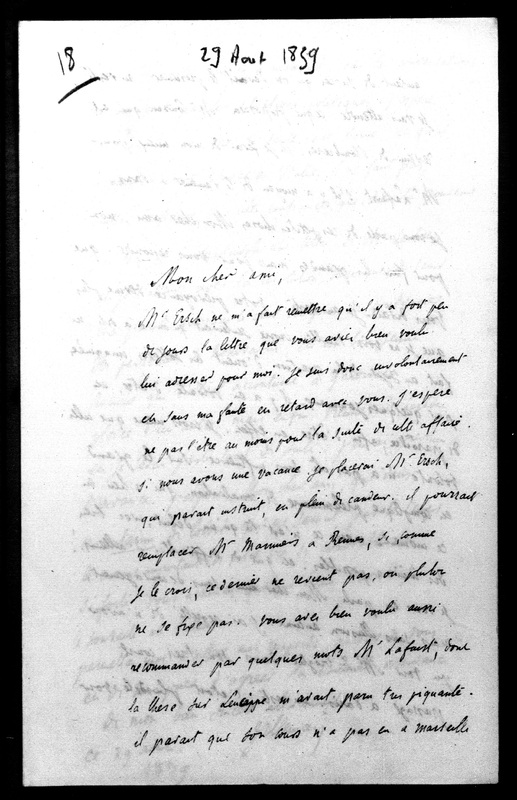 18
29 Aout 1839
Mon cher ami,
Mr Ersch ne m'a fait remettre qu'il y a fort peu
de jours la lettre que vous aviez bien voulu
lui adresser pour moi. Je suis donc involontairement
et sans ma faute en retard avec vous. J'espère
ne pas l'être au moins pour la suite de cette affaire.
Si nous avons une vacance je placerai Mr Ersch,
qui parait instruit, et plein de candeur. il pourrait
remplacer Mr à Rennes, si, comme
je le crois, ce dernier ne revient pas, ou plutôt
ne se fixe pas. vous avez bien voulu aussi
recommander par quelques mots Mr Lafaist, dont
la these sur Leucippe m'avait paru tres piquante.
il parait que son cours n'a pas eu a marseille